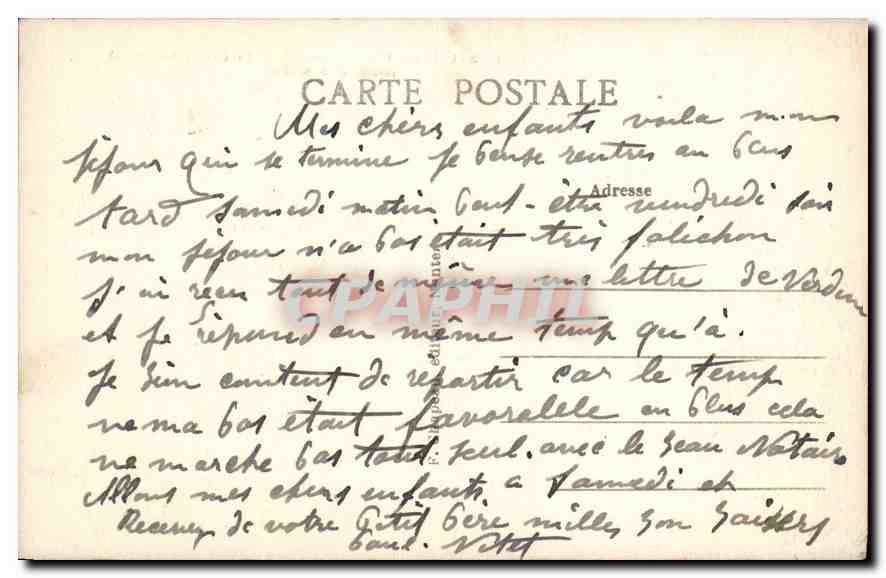 CARTE POSTALE
Mes chers enfants voila mon
séjour qui se termine je pense rentres au plus
Adresse
tard samedi matin peut-être vendredi soir
mon séjour n'a pas était très folichon
j'ai recu tout de même une lettre de Verdun
et je répond en même temp qu'à.
Je suis content de repartir car le temp
ne ma pas était favorable en plus cela
ne marche pas tout seul. avec le beau Notaire
Allons mes chers enfants a samedi et
Recevez de votre Petit père milles bon baisers
Paul. Vitet
F. éditeur, Nantes
CPAPHIL